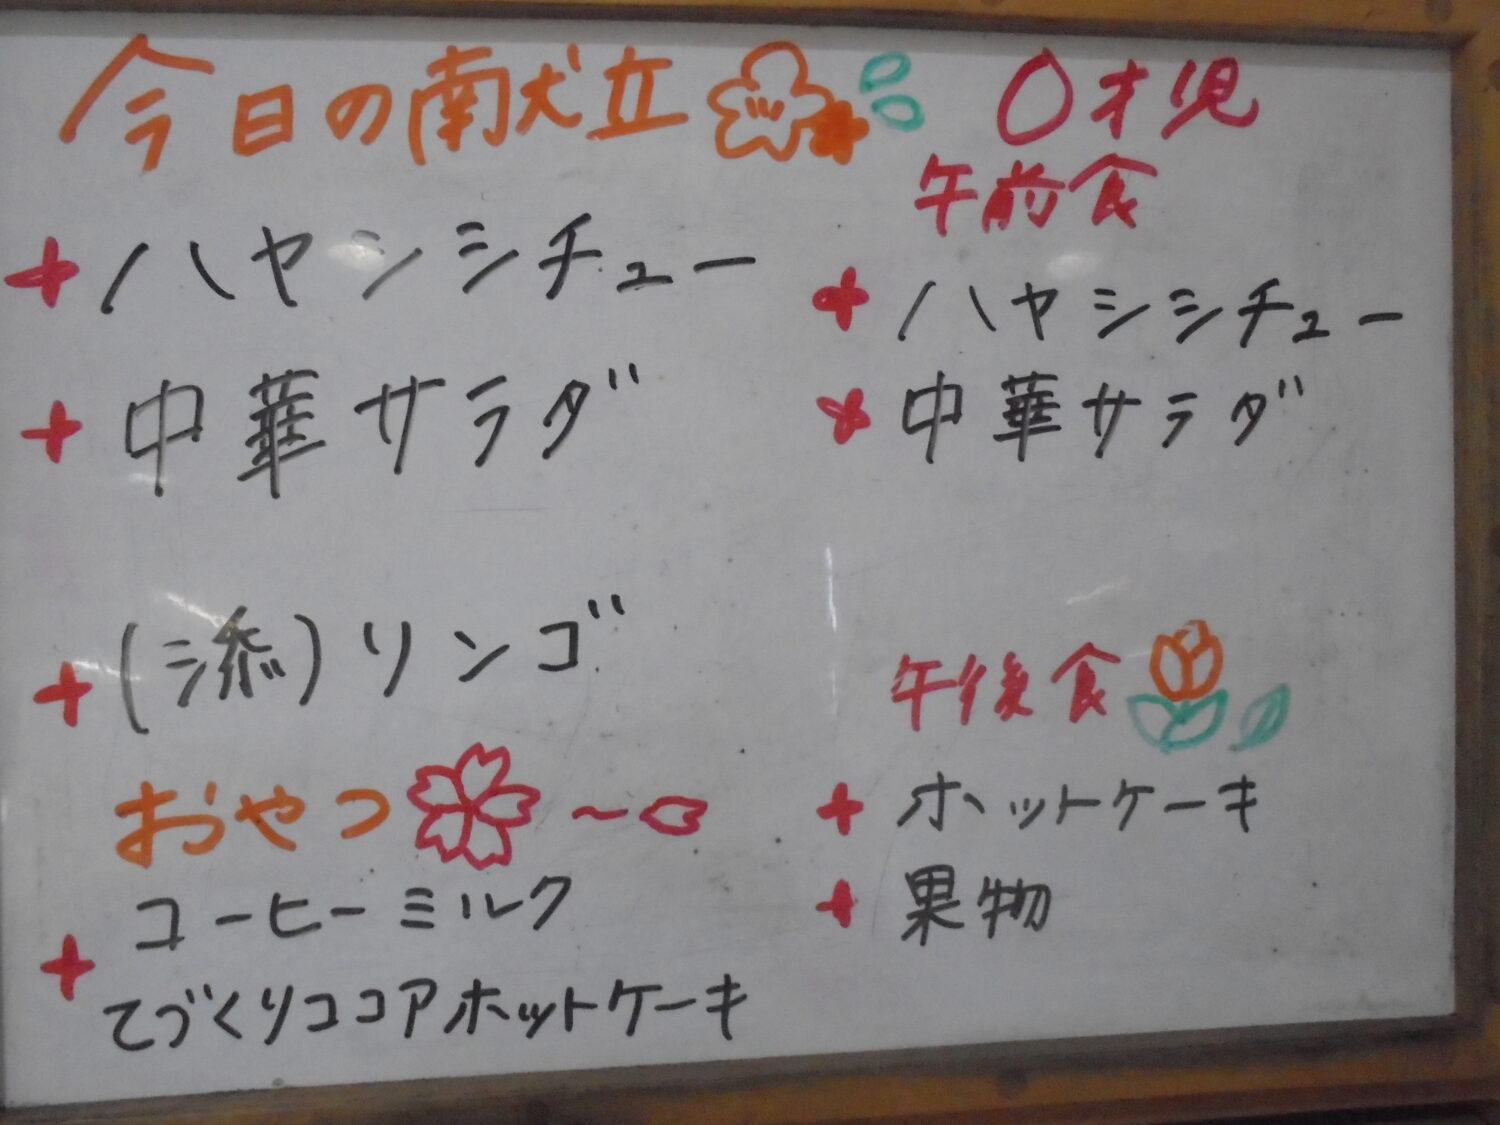 今日の献立
ハヤシシチュー
中華サラダ
(添)リンゴ
おやつ
コーヒーミルク
てづくりココアホットケーキ
0才児
午前食
ハヤシシチュー
中華サラダ
午後食
ホットケーキ
果物